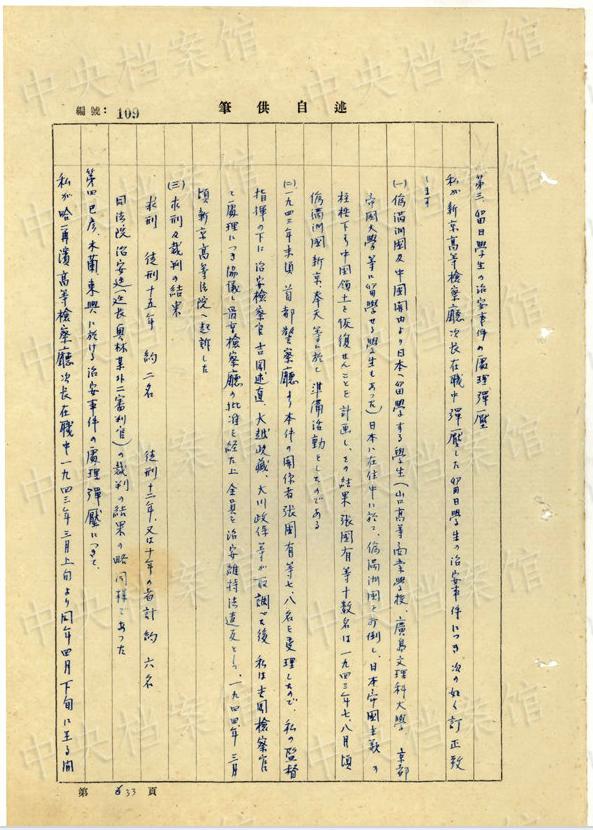 編號：109
筆供自述
第三、留日學生の治安事件の處理彈壓
私が新京高等檢察廳次長在職中彈壓した留日學生の治安事件につき次の如く訂正致
します
(一)偽滿洲國及中國関内より日本へ留學する學生(山口高等商業學校、廣島文理科大學、京都
帝國大學等に留學せる學生もあった)日本に在住中に於て、偽滿洲國を打倒し、日本帝國主義の
桎梏下より中國領土を恢復せんことを計画し、その結果張國有等十数名は一九四三年七、八月頃
偽滿洲國新京、奉天等に於て準備活動をしたのである
(二)一九四三年末頃首都警察廳より本件の関係者張國有等七、八名を受理したので、私の監督
指揮の下に治安檢察官吉岡述直、大越收藏、大川政保等が取調べた後私は吉岡檢察官
と處理につき協議し最高檢察廳の批准を経た上全員を治安維持法違反として、一九四四年三月
頃新京高等法院へ起訴した
(三)求刑及裁判の結果
求刑 徒刑十五年 約二名 徒刑十二年又は十年の者計約六名
司法院治安廷(廷長奥林某外二審判官)の裁判の結果も略同様であった
第四、巴彦、木蘭、東興に於ける治安事件の處理彈壓につきて、
私が哈爾濱高等檢察廳次長在職中一九四三年三月上旬より同年四月下旬に至る間
中央档案馆
第 633 頁